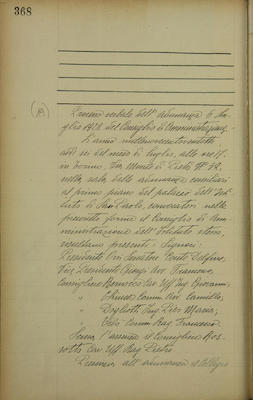 368
(19)
Processo verbale dell'adunanza 6 Lu-
glio 1928 del Consiglio di Amministrazione.
L'anno millenovecentoventotto
addì sei del mese di luglio, alle ore 17.
in Torino, Via Monte di Pietà N° 32,
nella sala delle adunanze consiliari
al primo piano del palazzo dell'Isti-
tuto di San Paolo, convocatosi nelle
prescritte forme il Consiglio di Am-
ministrazione dell'Istituto stesso
risultano presenti i Signori:
Presidente On. Senatore Conte Delfino
Vice Presidente Avv. Francesco
Consigliere Cav. Uff. Ing. Giovanni;
" Comm. Avv. Camillo;
" Ing. Pietro Mario;
" Comm. Rag. Francesco
l'assenza il Consigliere Bos-
Cav. Uff. Rag. Pietro
all'adunanza il Collegio